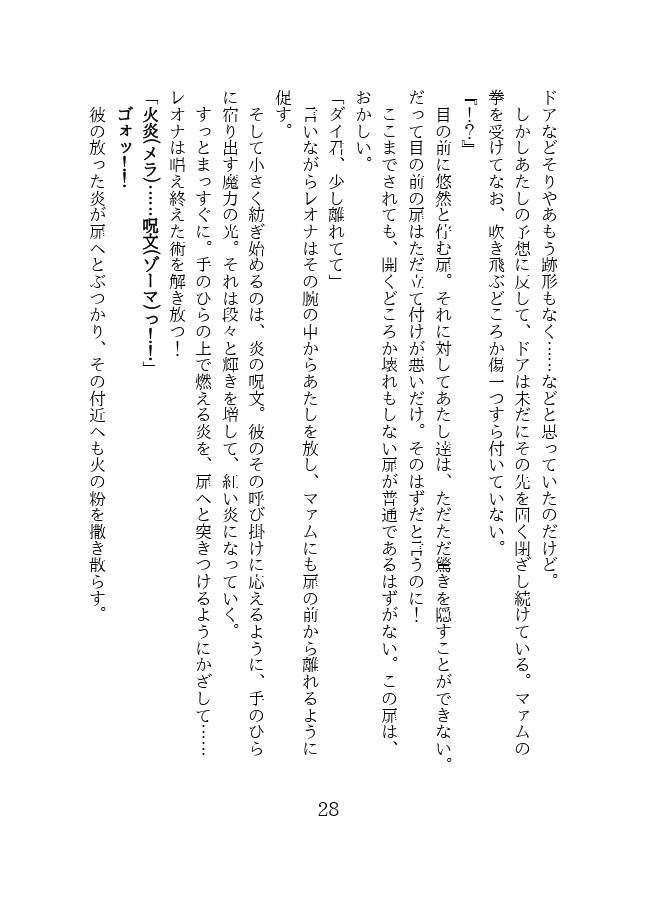 ドアなどそりやあもう跡形もなく……などと思っていたのだけど。
しかしあたしの予想に反して、ドアは未だにその先を固く閉ざし続けている。マァムの
拳を受けてなお、吹き飛ぶどころか傷一つすら付いていない。
『！？』
目の前に悠然と佇む扉。それに対してあたし達は、ただただ驚きを隠すことができない。
だって目の前の扉はただ立て付けが悪いだけ。そのはずだと言うのに！
ここまでされても、開くどころか壊れもしない扉が普通であるはずがない。この扉は、
おかしい。
「ダイ君、少し離れてて」
言いながらレオナはその腕の中からあたしを放し、マァムにも扉の前から離れるように
促す。
そして小さく紡ぎ始めるのは、炎の呪文。彼のその呼び掛けに応えるように、手のひら
に宿り出す魔力の光。それは段々と輝きを増して、紅い炎になっていく。
すっとまっすぐに。手のひらの上で燃える炎を、扉へと突きつけるようにかざして……
レオナは唱え終えた術を解き放つ！
「火炎(メラ)……呪文(ゾーマ)っ！！」
ゴォッ！！
彼の放った炎が扉へとぶつかり、その付近へも火の粉を撒き散らす。
28